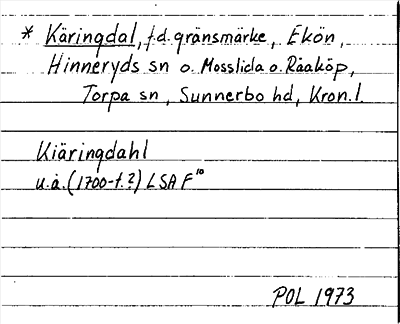 * Käringdal, f.d. gränsmärke, Ekön,
Hinneryds sn o. Mosslida o. Råaköp,
Torpa sn, Sunnerbo hd, Kron. l.
Kiäringdahl
u.å. (1700-t.?) LSA F 10
POL 1973